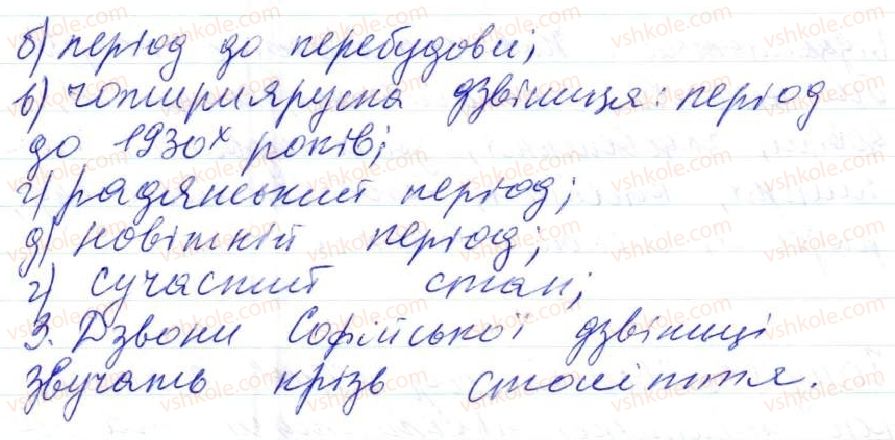 б) період до перебудови;
в) чотириярусна дзвіниця: період
до 1930х років;
г) радянський період;
д) новітній період;
г) сучасний стан;
3. Дзвони Софійської дзвіниці
звучать крізь століття.